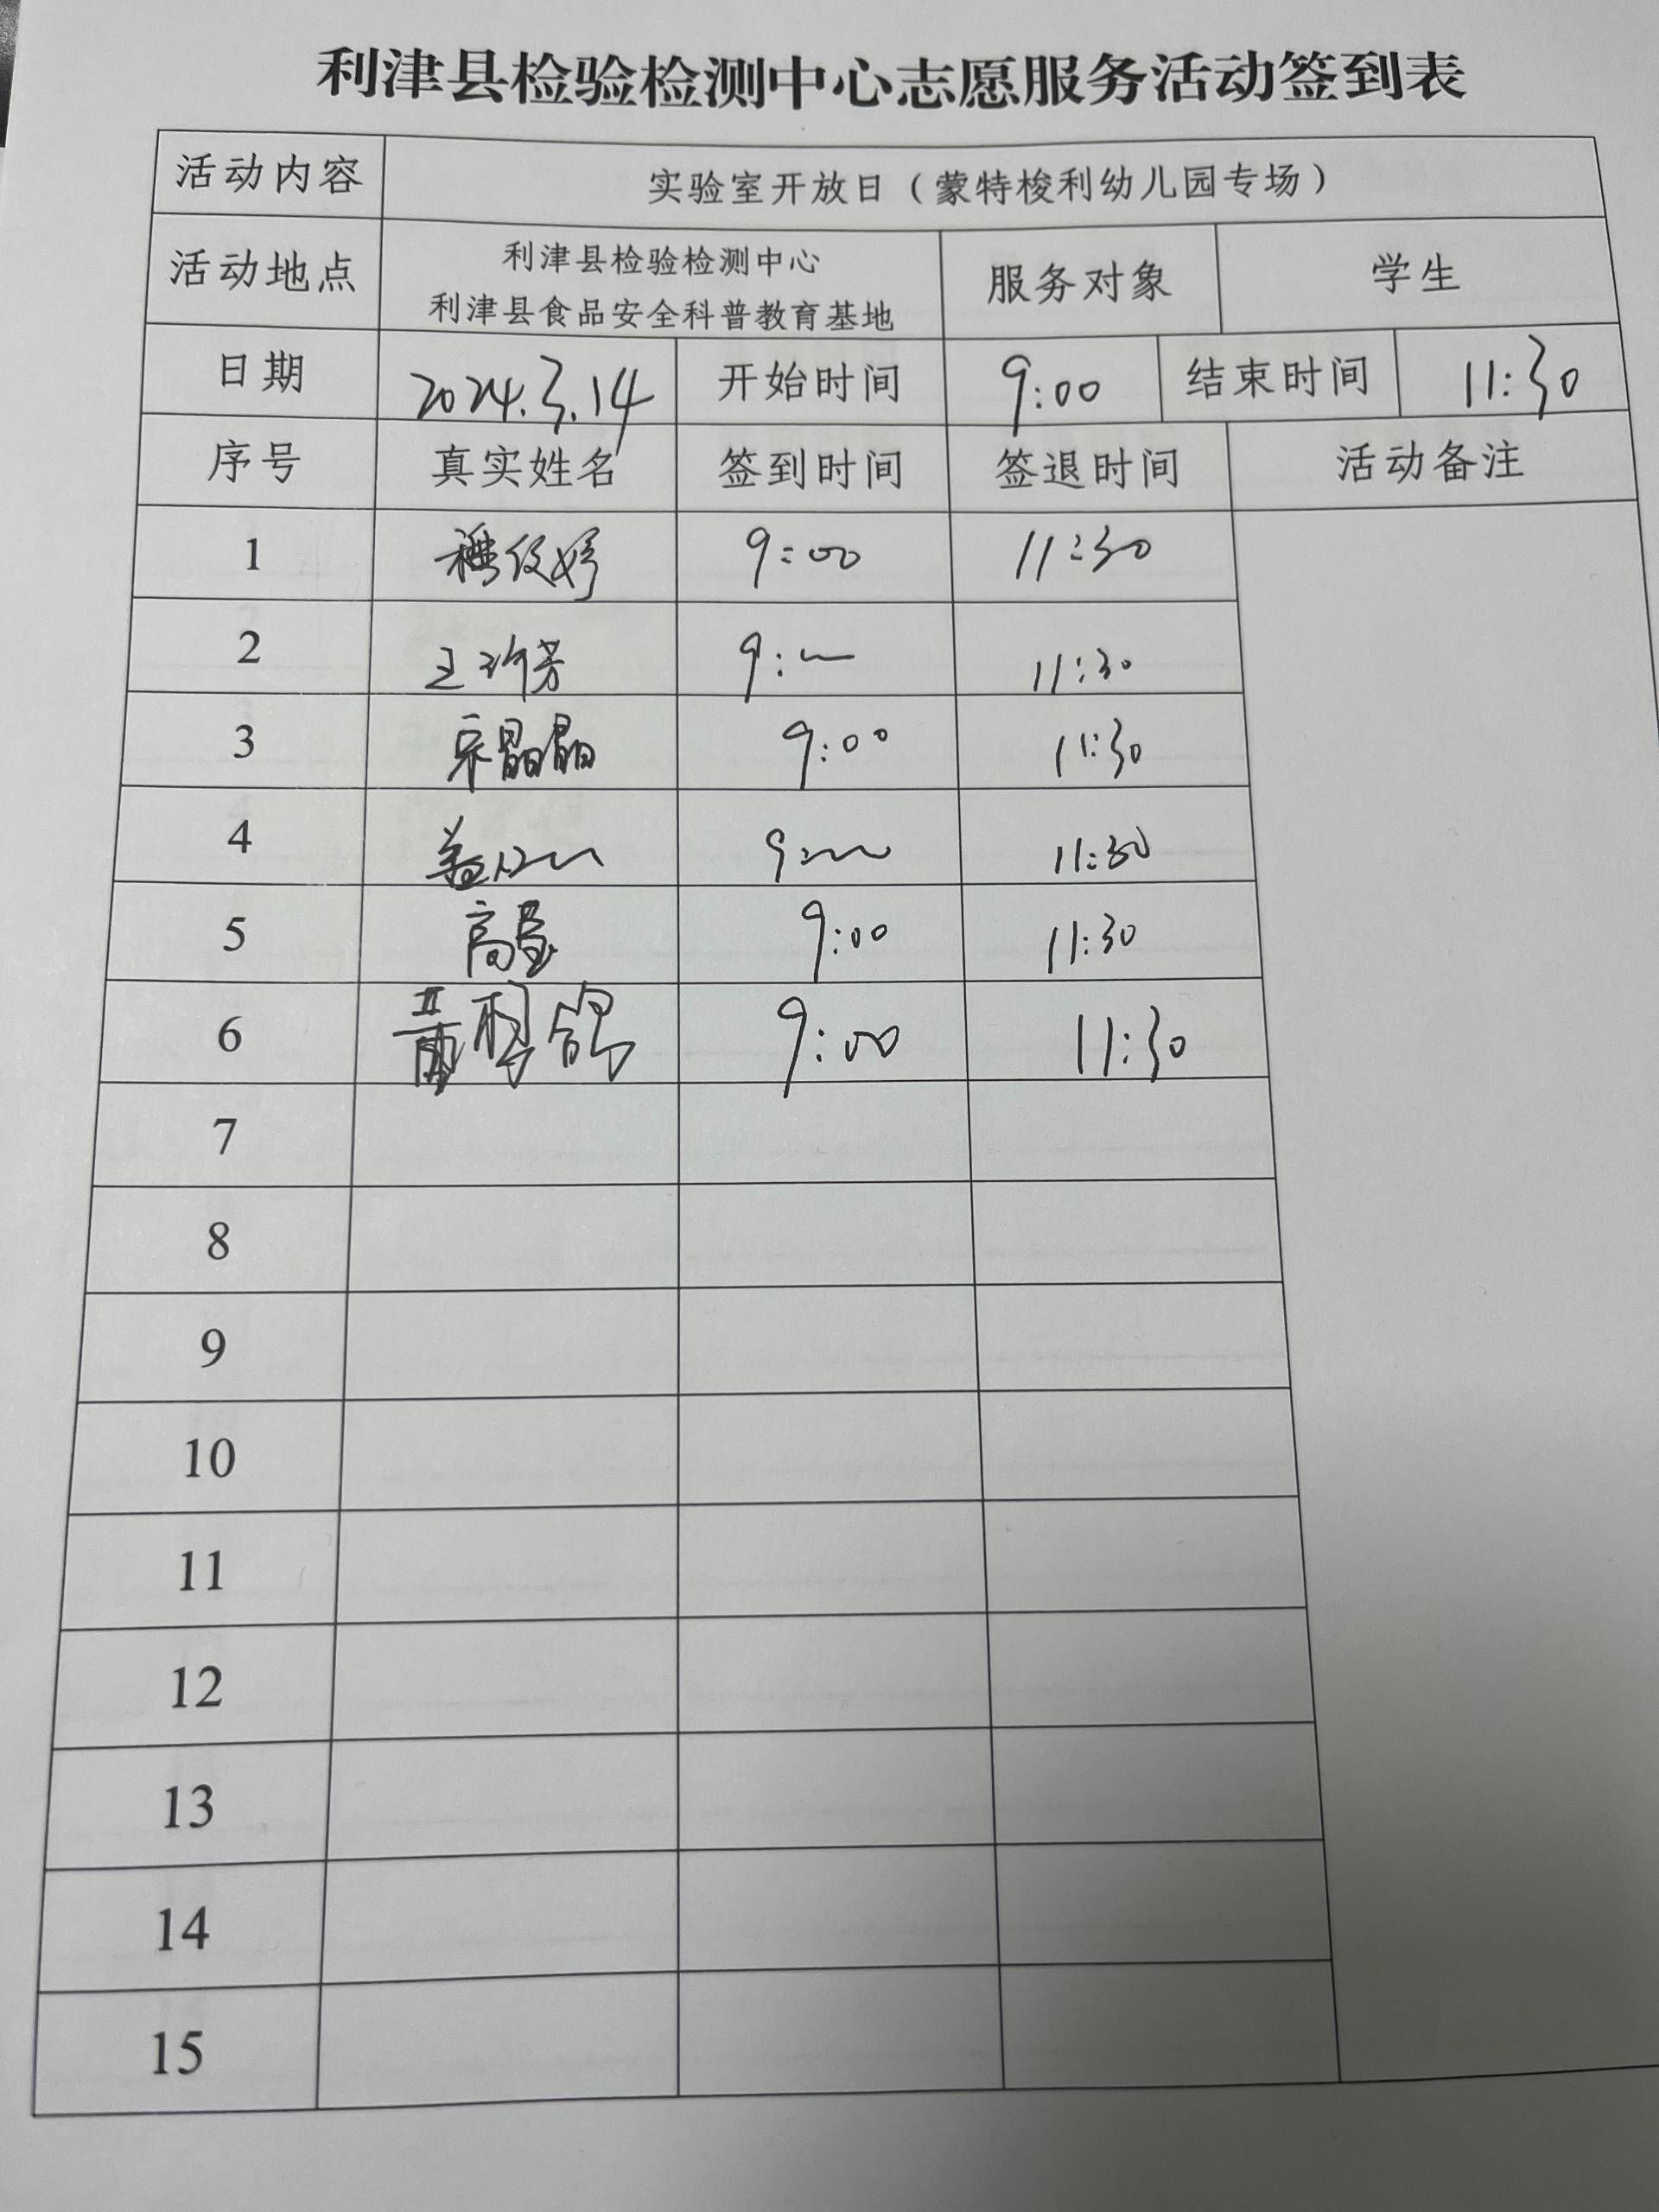 利津县检验检测中心志愿服务活动签到表
活动内容 实验室开放日（蒙特梭利幼儿园专场）
活动地点 利津县检验检测中心
利津县食品安全科普教育基地 服务对象 学生
日期 2024.3.14 开始时间 9:00 结束时间 11:30
序号 真实姓名 签到时间 签退时间 活动备注
1 9:00 11:30
2 王 9:00 11:30
3 宋晶晶 9:00 11:30
4 盖 9:00 11:30
5 高 9:00 11:30
6 9:00 11:30
7
8
9
10
11
12
13
14
15